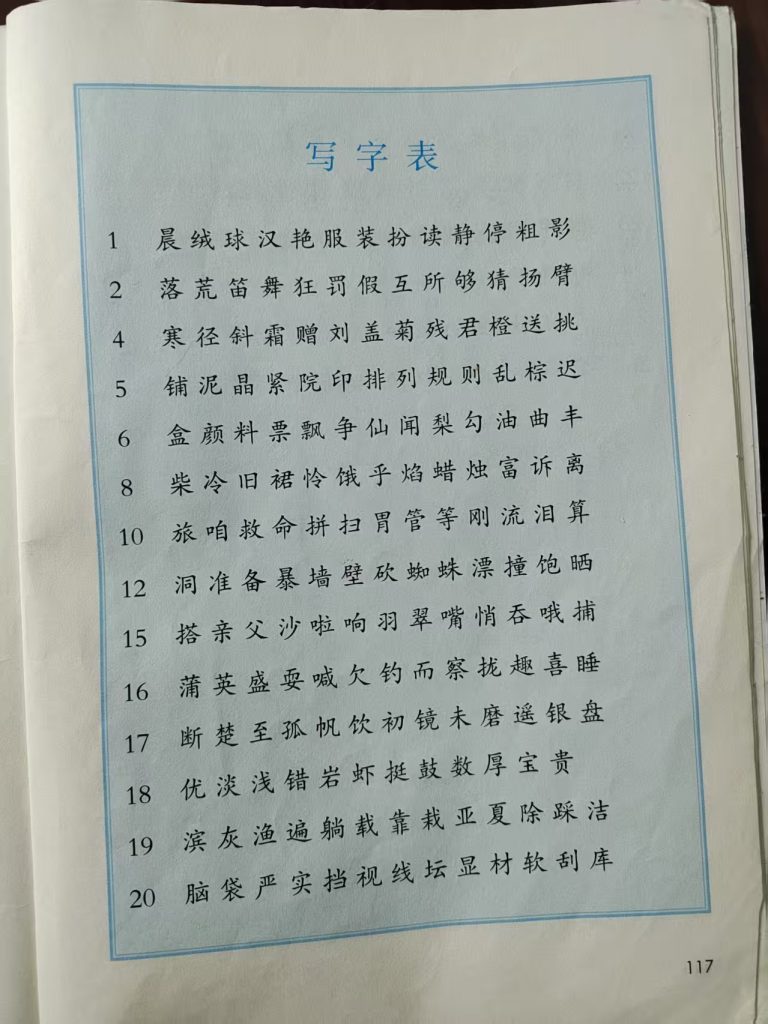 写字表
1 晨绒球汉艳服装扮读静停粗影
2 落荒笛舞狂罚假互所够猜扬臂
4 寒径斜霜赠刘盖菊残君橙送挑
5 铺泥晶紧院印排列规则乱棕迟
6 盒颜料票飘争仙闻梨勾油曲丰
8 柴冷旧裙怜饿乎焰蜡烛富诉离
10 旅咱救命拼扫胃管等刚流泪算
12 洞准备暴墙壁砍蜘蛛漂撞饱晒
15 搭亲父沙啦响羽翠嘴悄吞哦捕
16 蒲英盛耍喊欠钓而察拢趣喜睡
17 断楚至孤帆饮初镜未磨遥银盘
18 优淡浅错岩虾挺鼓数厚宝贵
19 滨灰渔遍躺载靠栽亚夏除踩洁
20 脑袋严实挡视线坛显材软刮库
117